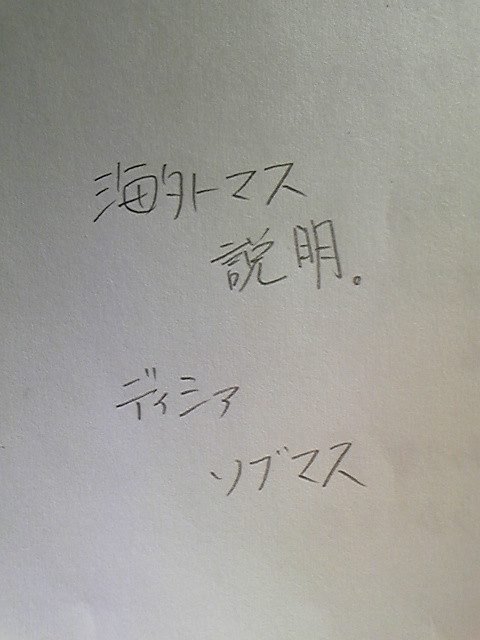 海外トマス
説明。
ディシア
ソブマス